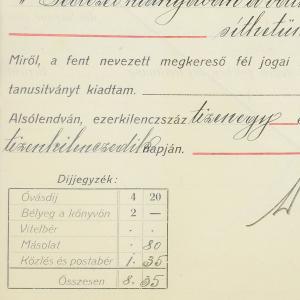 síthetün
Miről, a fent nevezett megkereső fél jogai
tanusitványt kiadtam.
Alsólendván, ezerkilenczszáz tizenegy
tizenkilenczedik napján.
Díjjegyzék:
Óvásdíj 4 20
Bélyeg a könyvön 2 —
Vitelbér . .
Másolat . 80
Közlés és postabér 1. 35
Összesen 8. 35